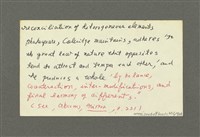 reconciliation of heterogeneous elements,
Coleridge maintains, adheres to
great law of nature that opposites
tend to attract and temper each other," and
produces a whole "by balance,
counteraction, inter-modifications, and
final harmony of differents."
(See,